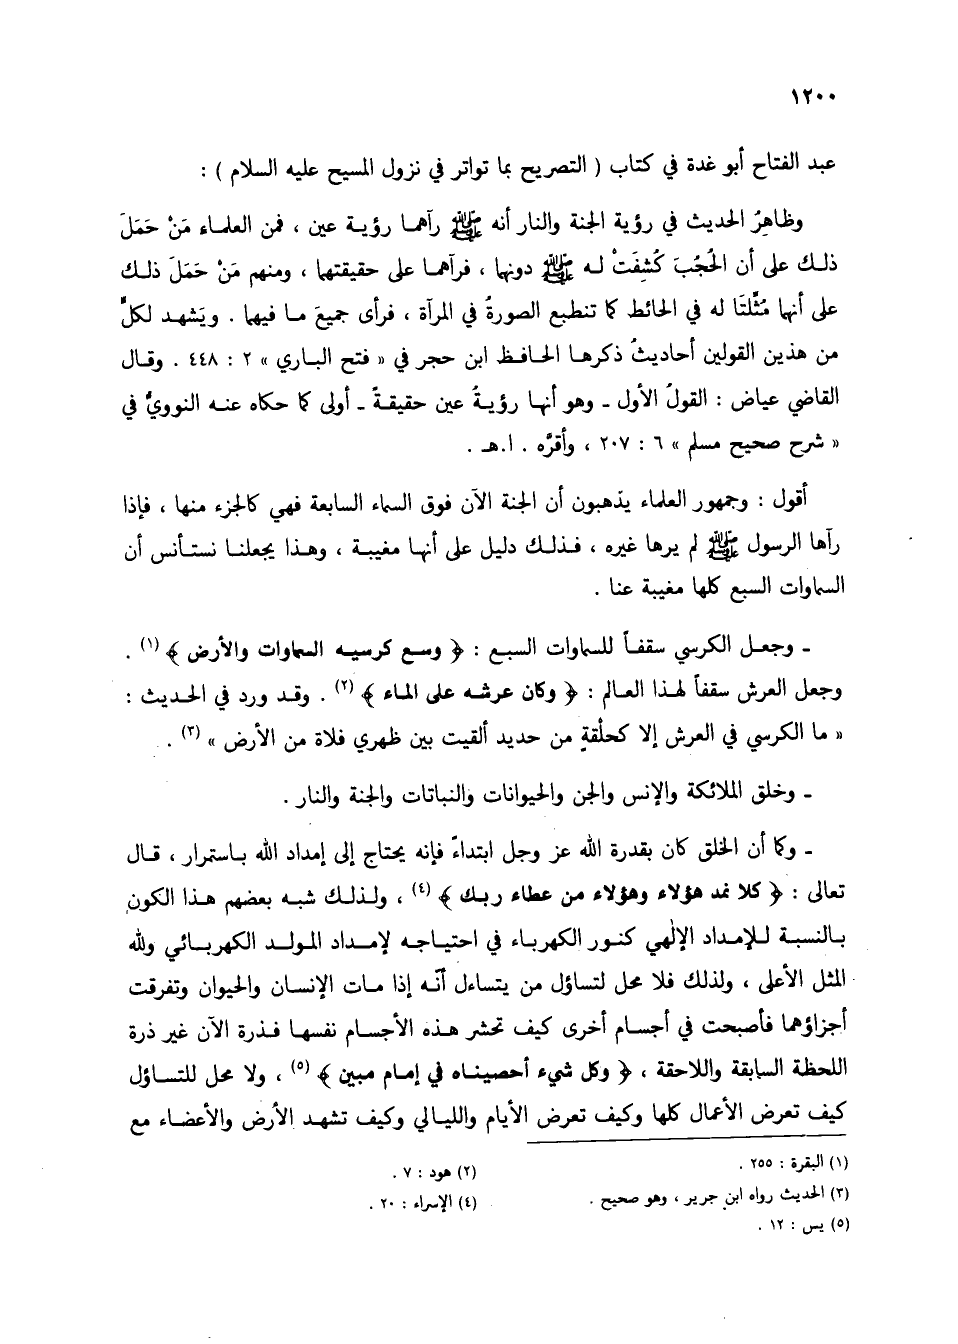 ١٢٠٠
عبد الفتاح أبو غدة في كتاب ( التصريح بما تواتر في نزول المسيح عليه السلام ) :
وظاهِرُ الحديث في رؤية الجنة والنار أنه ﷺ رآهما رؤية عين ، فمن العلماء مَنْ حَمَلَ
ذلك على أن الحُجُبَ كُشِفَتْ له ﷺ دونها ، فرآهما على حقيقتها ، ومنهم مَنْ حَمَلَ ذلك
على أنها مُثِّلَتَا له في الحائط كما تنطبع الصورةُ في المرآة ، فرأى جميعَ ما فيها . ويَشهد لكلٍّ
من هذين القولين أحاديثُ ذكرها الحافظ ابن حجر في « فتح الباري » ٢ : ٤٤٨ . وقال
القاضي عياض : القولُ الأول ـ وهو أنها رؤيةُ عين حقيقةً ـ أولى كما حكاه عنه النوويُّ في
« شرح صحيح مسلم » ٦ : ٢٠٧ ، وأقرَّه . ا.هـ .
أقول : وجمهور العلماء يذهبون أن الجنة الآن فوق السماء السابعة فهي كالجزء منها ، فإذا
رآها الرسول ﷺ لم يرها غيره ، فذلك دليل على أنها مغيبة ، وهذا يجعلنا نستأنس أن
السماوات السبع كلها مغيبة عنا .
ـ وجعل الكرسي سقفاً للسماوات السبع : ﴿ وسع كرسيه السماوات والأرض ﴾ (١) .
وجعل العرش سقفاً لهذا العالم : ﴿ وكان عرشه على الماء ﴾ (٢) . وقد ورد في الحديث :
« ما الكرسي في العرش إلا كحلْقةٍ من حديد ألقيت بين ظهري فلاة من الأرض » (٣) .
ـ وخلق الملائكة والإنس والجن والحيوانات والنباتات والجنة والنار .
ـ وكما أن الخلق كان بقدرة الله عز وجل ابتداءً فإنه يحتاج إلى إمداد الله باستمرار ، قال
تعالى : ﴿ كلا نمد هؤلاء وهؤلاء من عطاء ربك ﴾ (٤) ، ولذلك شبه بعضهم هذا الكون
بالنسبة للإمداد الإلٰهي كنور الكهرباء في احتياجه لإمداد المولد الكهربائي ولله
المثل الأعلى ، ولذلك فلا محل لتساؤل من يتساءل أنّه إذا مات الإنسان والحيوان وتفرقت
أجزاؤهما فأصبحت في أجسام أخرى كيف تحشر هذه الأجسام نفسها فذرة الآن غير ذرة
اللحظة السابقة واللاحقة ، ﴿ وكل شيء أحصيناه في إمام مبين ﴾ (٥) ، ولا محل للتساؤل
كيف تعرض الأعمال كلها وكيف تعرض الأيام والليالي وكيف تشهد الأرض والأعضاء مع
(١) البقرة : ٢٥٥ .
(٢) هود : ٧ .
(٣) الحديث رواه ابن جرير ، وهو صحيح .
(٤) الإسراء : ٢٠ .
(٥) يس : ١٢ .